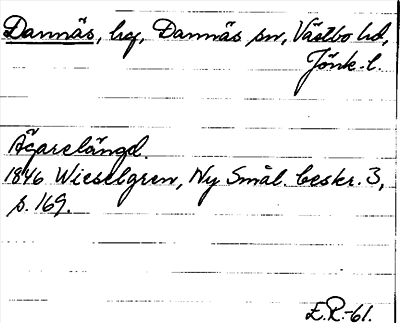 Dannäs, hg, Dannäs sn, Västbo hd,
Jönk. l.
Ägarelängd.
1846 Wieselgren, Ny Smål. beskr. 3,
s. 169.
E.R.-61.